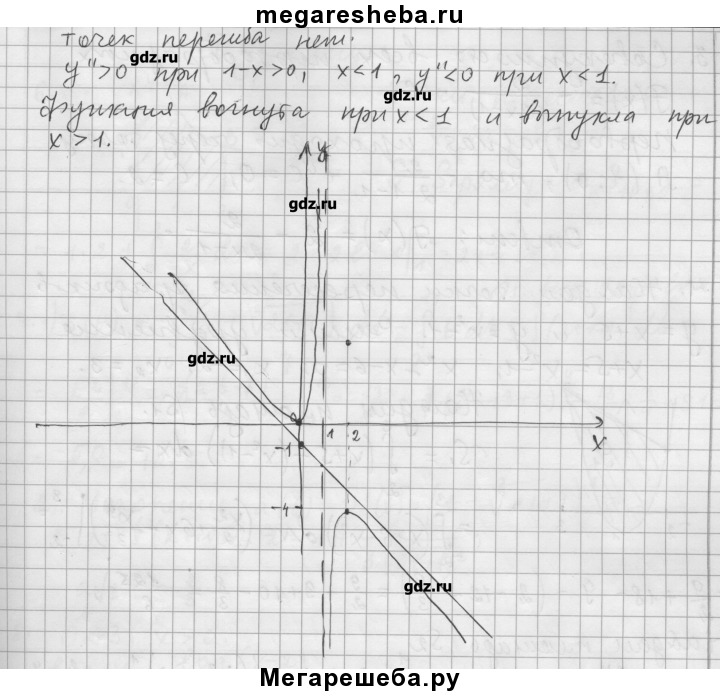 megaresheba.ru
точек перегиба нет.
gdz.ru
y">0 при 1-x>0, x<1, y"<0 при x<1.
gdz.ru
Функция вогнута при x<1 и выпукла при
x>1.
y
gdz.ru
gdz.ru
1 2
x
-1
-4
gdz.ru
Мегарешеба.ру